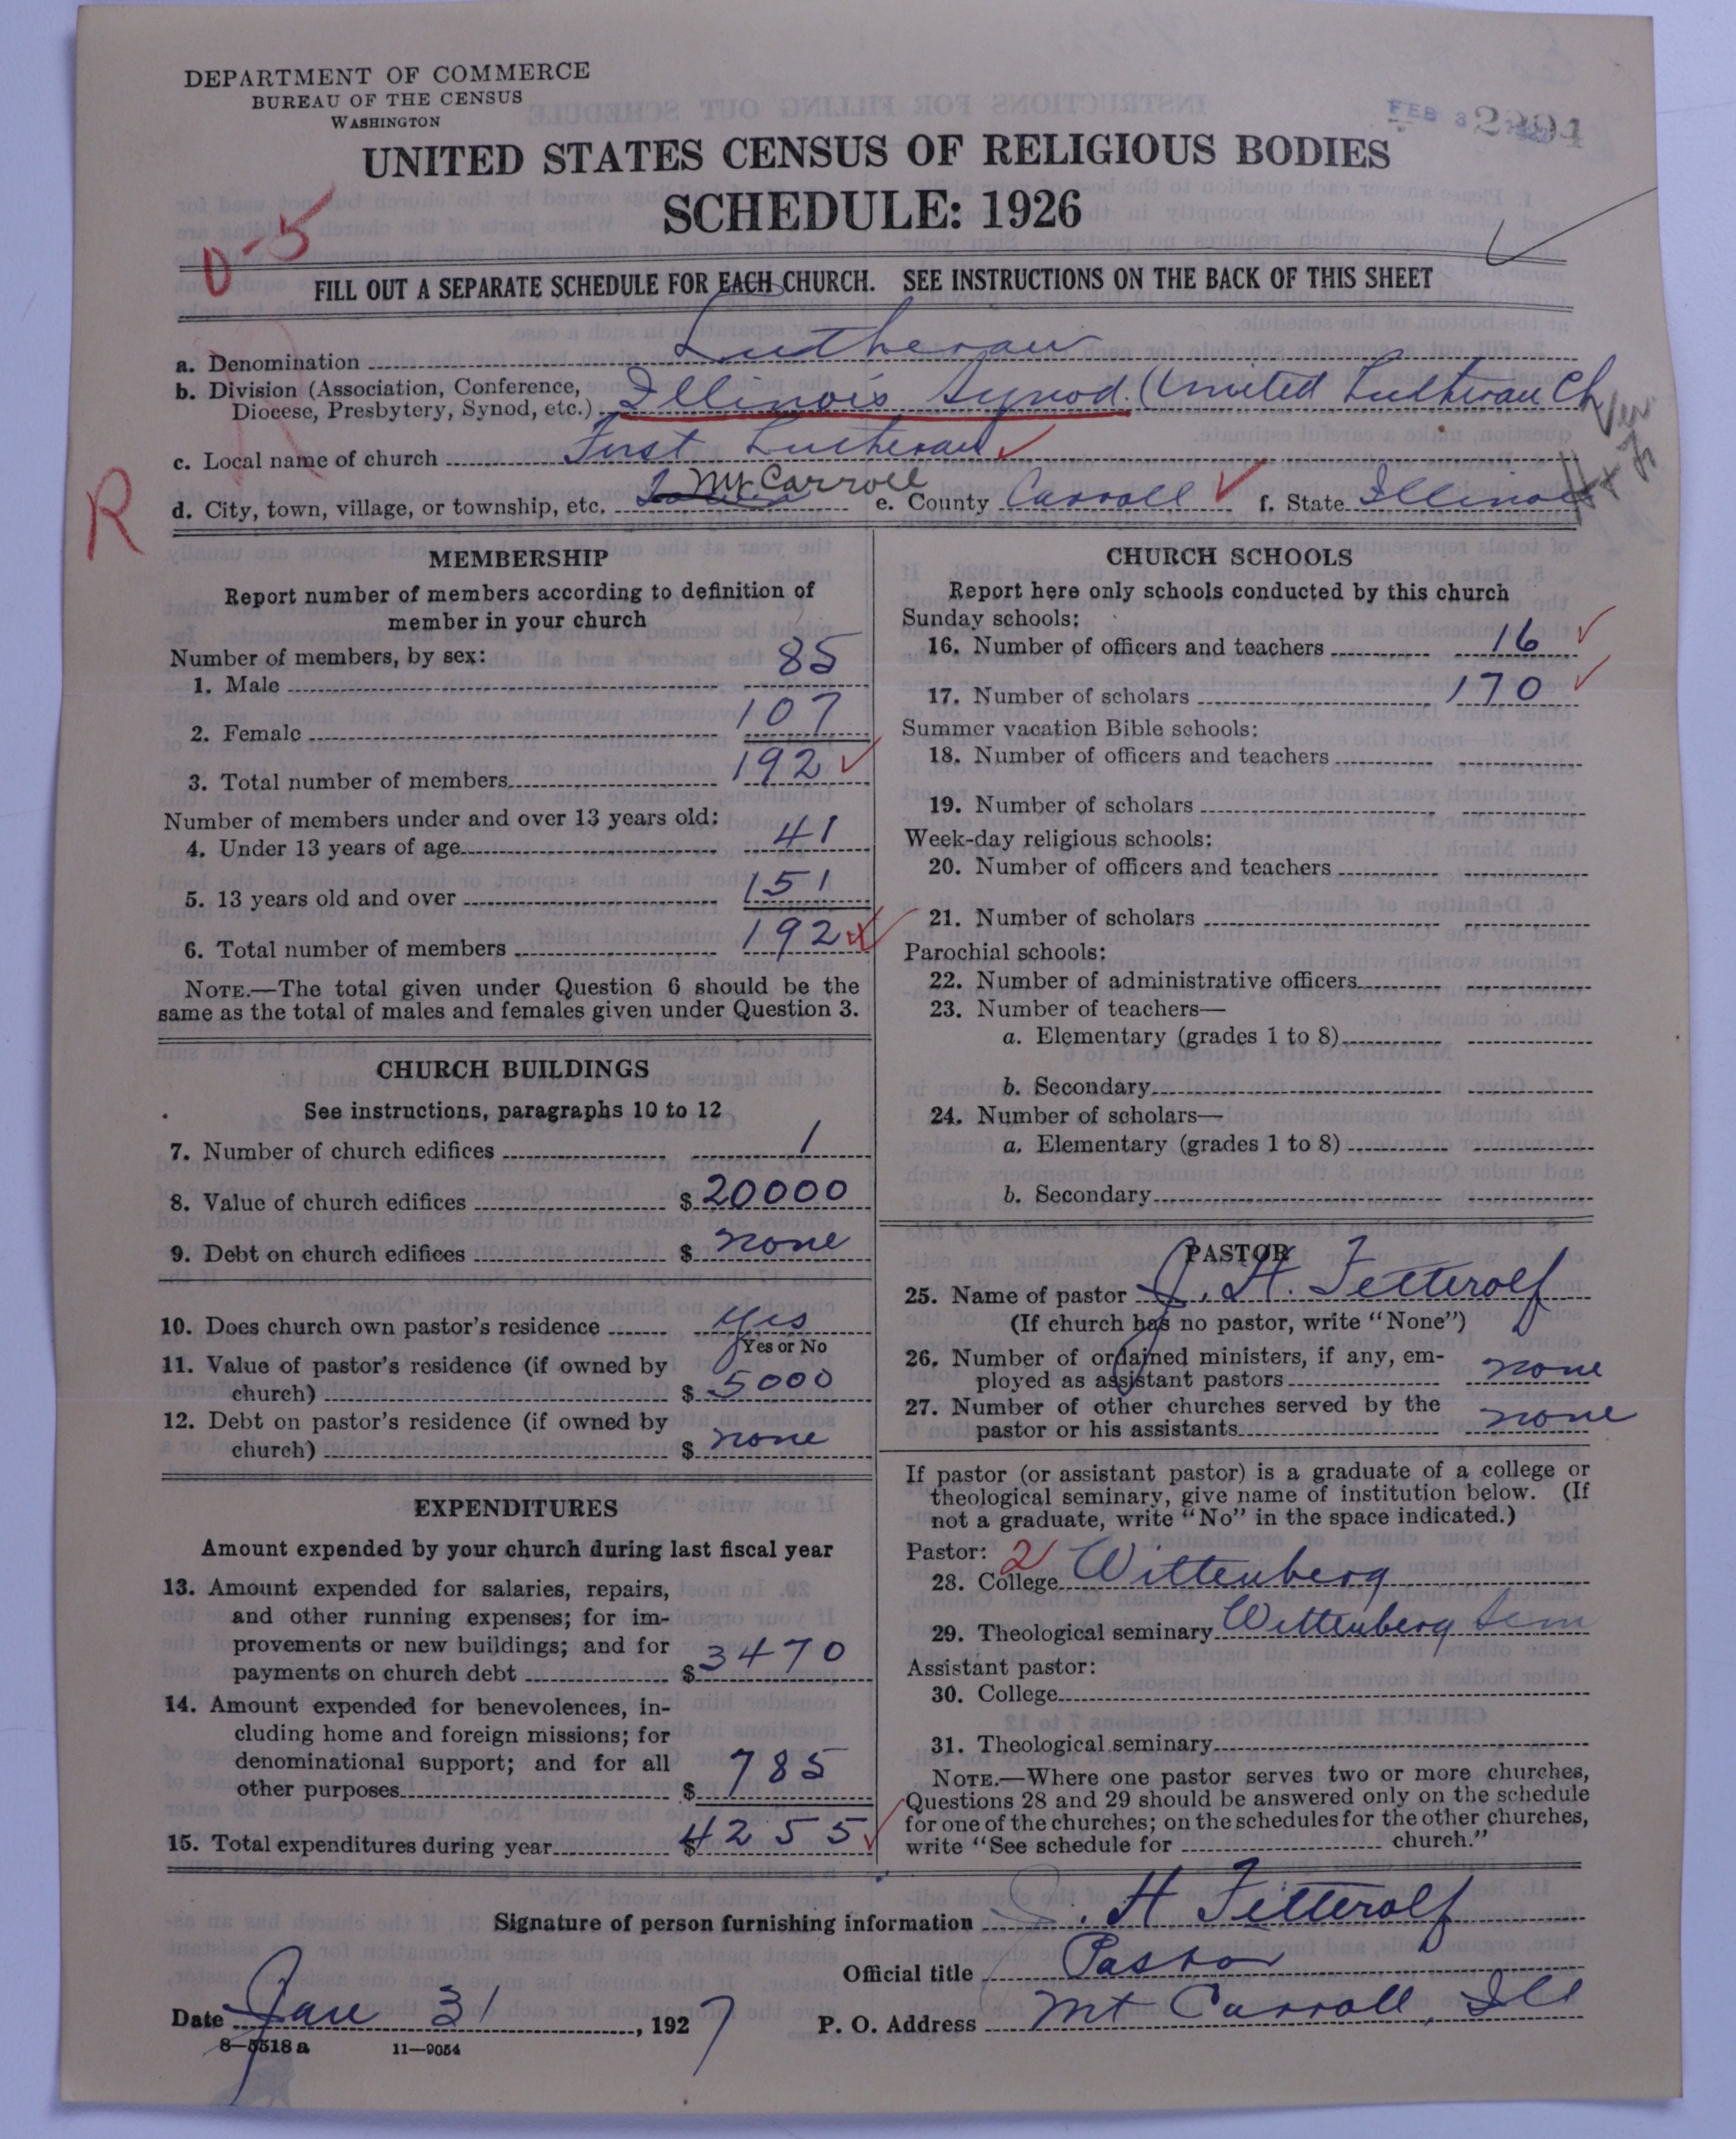 DEPARTMENT OF COMMERCE
BUREAU OF THE CENSUS
WASHINGTON
FEB 3
UNITED STATES CENSUS OF RELIGIOUS BODIES
SCHEDULE: 1926
0-5
FILL OUT A SEPARATE SCHEDULE FOR EACH CHURCH. SEE INSTRUCTIONS ON THE BACK OF THIS SHEET
a. Denomination Lutheran
b. Division (Association, Conference,
Diocese, Presbytery, Synod, etc.) Illinois Synod. (United Lutheran Ch
c. Local name of church First Lutheran
R
d. City, town, village, or township, etc. Mt Carroll e. County Carroll f. State Illinois
MEMBERSHIP
Report number of members according to definition of
member in your church
Number of members, by sex:
1. Male 85
2. Female 107
3. Total number of members 192
Number of members under and over 13 years old:
4. Under 13 years of age 41
5. 13 years old and over 151
6. Total number of members 192
NOTE.—The total given under Question 6 should be the
same as the total of males and females given under Question 3.
CHURCH BUILDINGS
See instructions, paragraphs 10 to 12
7. Number of church edifices 1
8. Value of church edifices $ 20000
9. Debt on church edifices $ none
10. Does church own pastor's residence yes
Yes or No
11. Value of pastor's residence (if owned by
church) $ 5000
12. Debt on pastor's residence (if owned by
church) $ none
EXPENDITURES
Amount expended by your church during last fiscal year
13. Amount expended for salaries, repairs,
and other running expenses; for im-
provements or new buildings; and for
payments on church debt $ 3470
14. Amount expended for benevolences, in-
cluding home and foreign missions; for
denominational support; and for all
other purposes $ 785
15. Total expenditures during year $ 4255
CHURCH SCHOOLS
Report here only schools conducted by this church
Sunday schools:
16. Number of officers and teachers 16
17. Number of scholars 170
Summer vacation Bible schools:
18. Number of officers and teachers
19. Number of scholars
Week-day religious schools:
20. Number of officers and teachers
21. Number of scholars
Parochial schools:
22. Number of administrative officers
23. Number of teachers—
a. Elementary (grades 1 to 8)
b. Secondary
24. Number of scholars—
a. Elementary (grades 1 to 8)
b. Secondary
PASTOR
25. Name of pastor J. H. Fetterolf
(If church has no pastor, write "None")
26. Number of ordained ministers, if any, em-
ployed as assistant pastors none
27. Number of other churches served by the
pastor or his assistants none
If pastor (or assistant pastor) is a graduate of a college or
theological seminary, give name of institution below. (If
not a graduate, write "No" in the space indicated.)
Pastor: 2
28. College Wittenberg
29. Theological seminary Wittenberg Sem
Assistant pastor:
30. College
31. Theological seminary
NOTE.—Where one pastor serves two or more churches,
Questions 28 and 29 should be answered only on the schedule
for one of the churches; on the schedules for the other churches,
write "See schedule for church."
Signature of person furnishing information J. H Fetterolf
Official title Pastor
Date Jan 31, 1927 P. O. Address Mt Carroll, Ill
8—5518 a 11—9054